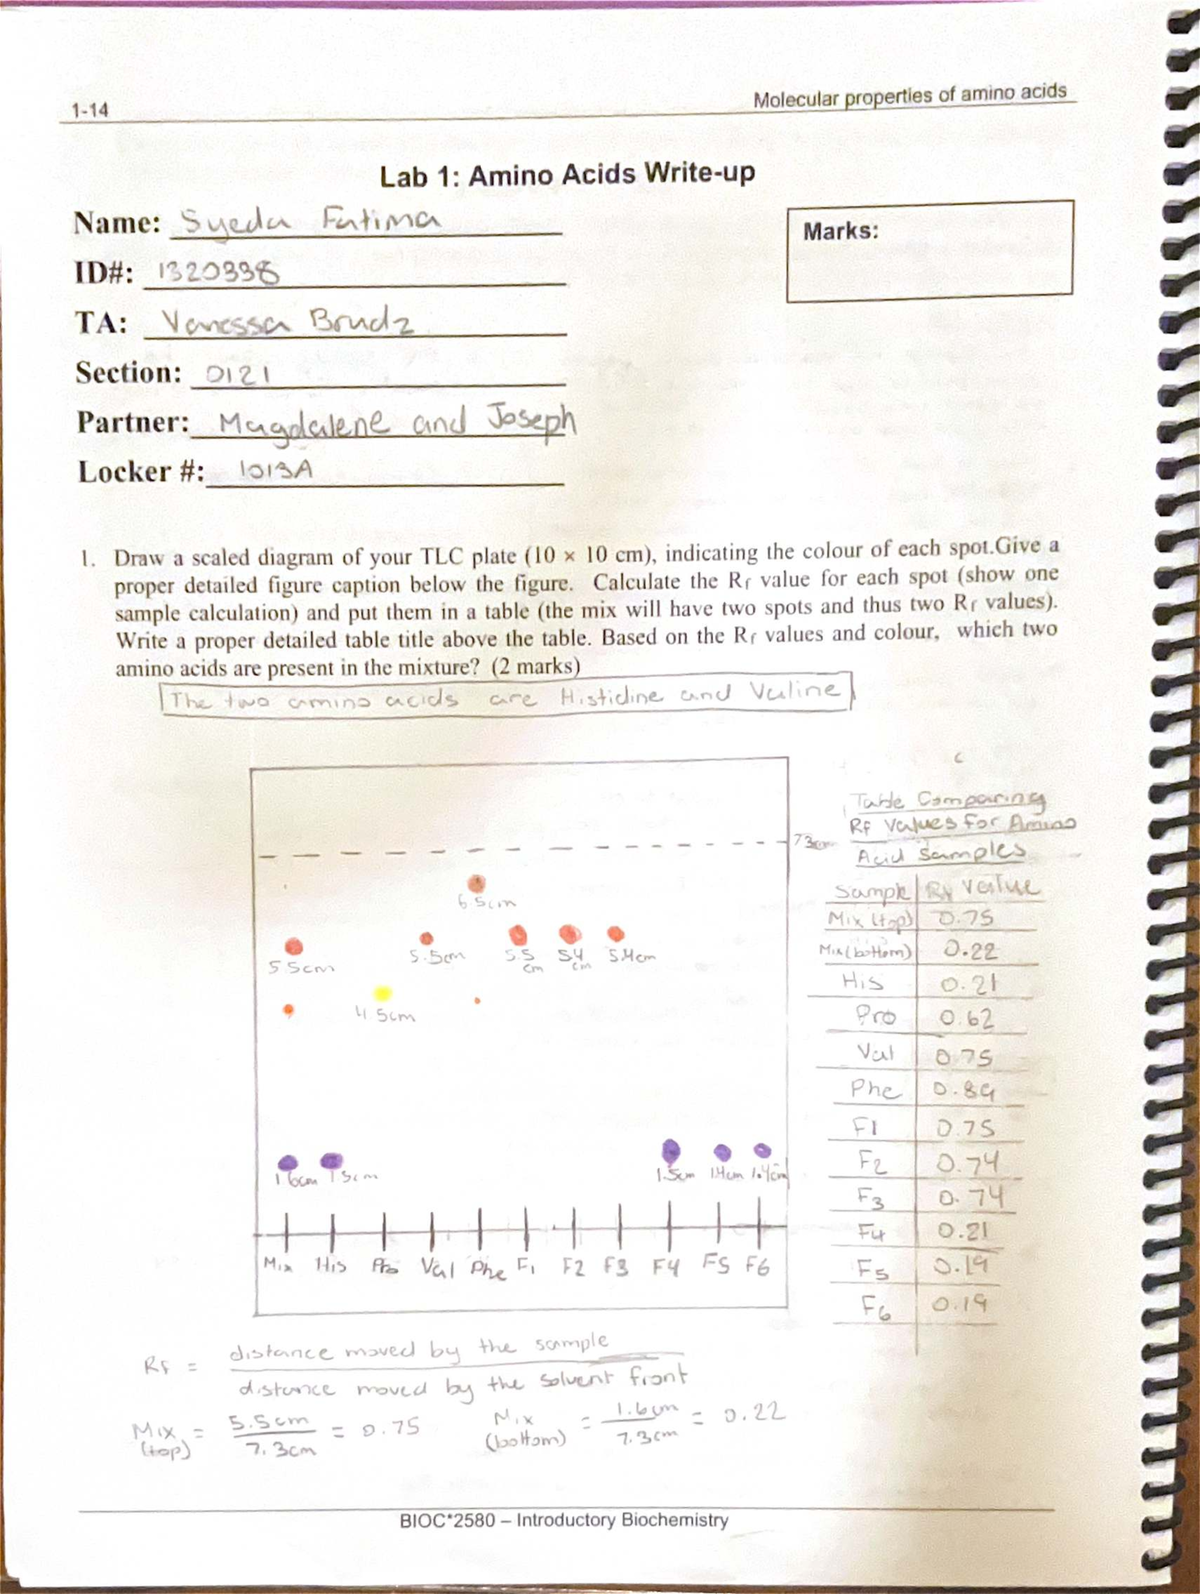 1-14
Molecular properties of amino acids
Lab 1: Amino Acids Write-up
Name: Syeda Fatima
Marks:
ID#: 1320338
TA: Vanessa Brudz
Section: 0121
Partner: Magdalene and Joseph
Locker #: 1013A
1. Draw a scaled diagram of your TLC plate (10 × 10 cm), indicating the colour of each spot.Give a
proper detailed figure caption below the figure. Calculate the Rf value for each spot (show one
sample calculation) and put them in a table (the mix will have two spots and thus two Rf values).
Write a proper detailed table title above the table. Based on the Rf values and colour, which two
amino acids are present in the mixture? (2 marks)
The two amino acids are Histidine and Valine
7.3cm
6.5cm
5.5cm 5.5cm 5.5 cm 5.4 cm 5.4cm
4.5cm
1.6cm 1.5cm 1.5cm 1.4cm 1.4cm
Mix His Pro Val Phe F1 F2 F3 F4 F5 F6
Table Comparing
Rf Values for Amino
Acid Samples
Sample Rf Value
Mix (top) 0.75
Mix (bottom) 0.22
His 0.21
Pro 0.62
Val 0.75
Phe 0.89
F1 0.75
F2 0.74
F3 0.74
F4 0.21
F5 0.19
F6 0.19
Rf = distance moved by the sample
distance moved by the solvent front
Mix (top) = 5.5cm / 7.3cm = 0.75
Mix (bottom) = 1.6cm / 7.3cm = 0.22
BIOC*2580 – Introductory Biochemistry